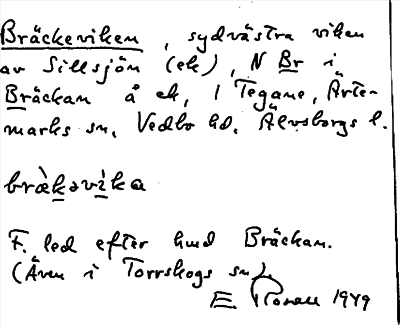 Bräckeviken, sydvästra viken
av Sillsjön (ek), N Br i
Bräckan å ek, i Tegane, Ärte-
marks sn, Vedbo hd, Älvsborgs l.
bràkəvìka
F. led efter hmd Bräckan.
(Även i Torrskogs sn).
E. 1949